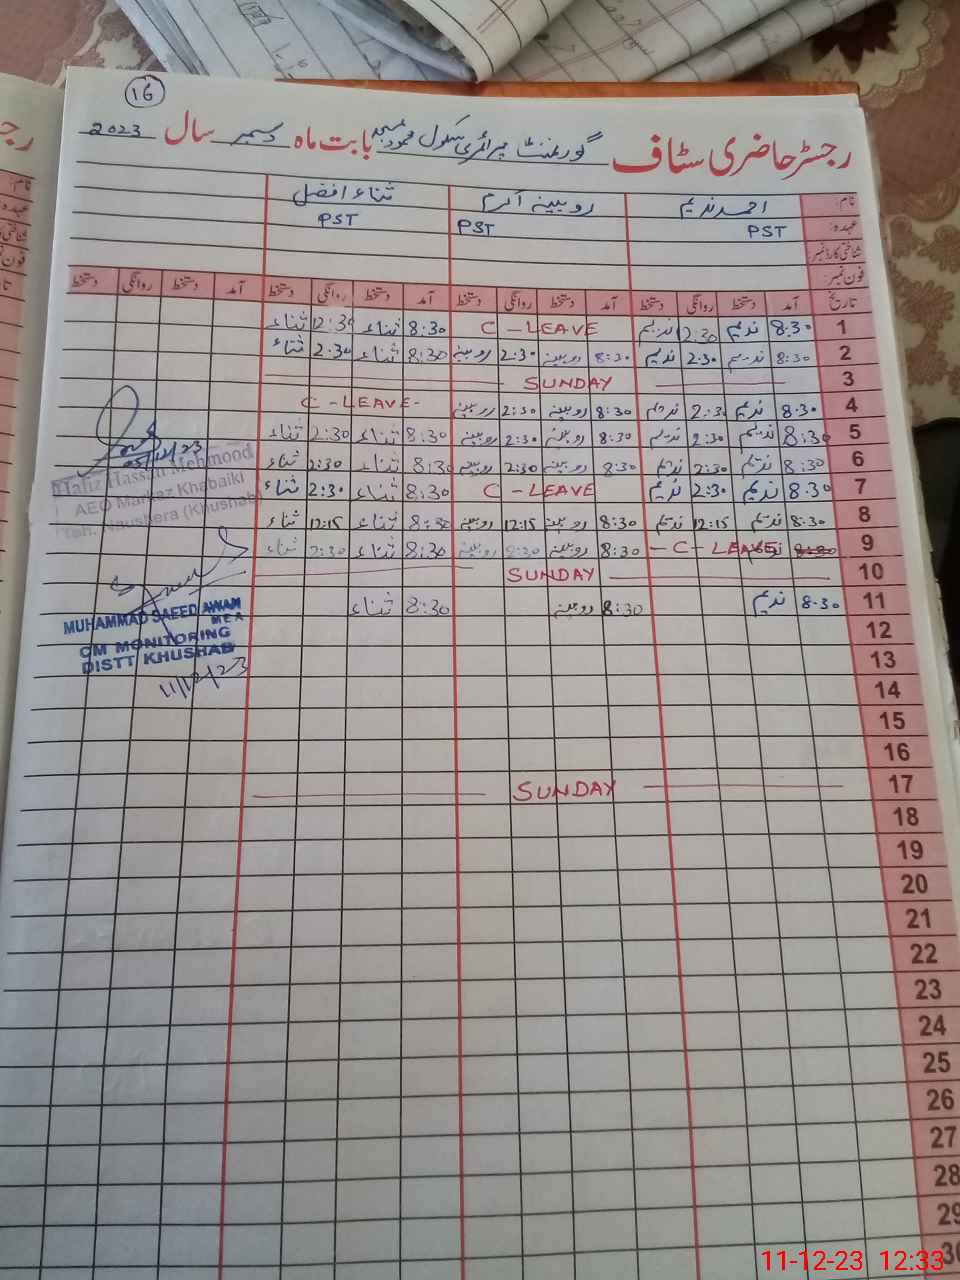 ۱۶
رجسٹر حاضری سٹاف گورنمنٹ پرائمری سکول محمود مسجد بابت ماہ دسمبر سال 2023
نام: احمد ندیم روبینہ اکرم ثناء افضل
عہدہ: PST PST PST
شناختی کارڈ نمبر:
فون نمبر:
تاریخ آمد دستخط روانگی دستخط آمد دستخط روانگی دستخط آمد دستخط روانگی دستخط آمد دستخط روانگی دستخط
1 8:30 ندیم 12:30 ندیم C-LEAVE 8:30 ثناء 12:30 ثناء
2 8:30 ندیم 2:30 ندیم 8:30 روبینہ 2:30 روبینہ 8:30 ثناء 2:30 ثناء
3 SUNDAY
4 8:30 ندیم 2:30 ندیم 8:30 روبینہ 2:30 روبینہ C-LEAVE-
5 8:30 ندیم 2:30 ندیم 8:30 روبینہ 2:30 روبینہ 8:30 ثناء 2:30 ثناء
6 8:30 ندیم 2:30 ندیم 8:30 روبینہ 2:30 روبینہ 8:30 ثناء 2:30 ثناء
7 8:30 ندیم 2:30 ندیم C-LEAVE 8:30 ثناء 2:30 ثناء
8 8:30 ندیم 12:15 ندیم 8:30 روبینہ 12:15 روبینہ 8:30 ثناء 12:15 ثناء
9 8:30 ندیم -C-LEAVE 8:30 روبینہ 8:30 روبینہ 8:30 ثناء 2:30 ثناء
10 SUNDAY
11 8:30 ندیم 8:30 روبینہ 8:30 ثناء
12
13
14
15
16
17 SUNDAY
18
19
20
21
22
23
24
25
26
27
28
29
30
05/12/23
Hafiz Hassan Mehmood
AEO Markaz Khabaiki
Teh. Naushera (Khushab)
MUHAMMAD SAEED AWAN
MEA
CM MONITORING
DISTT KHUSHAB
11/12/23
11-12-23 12:33